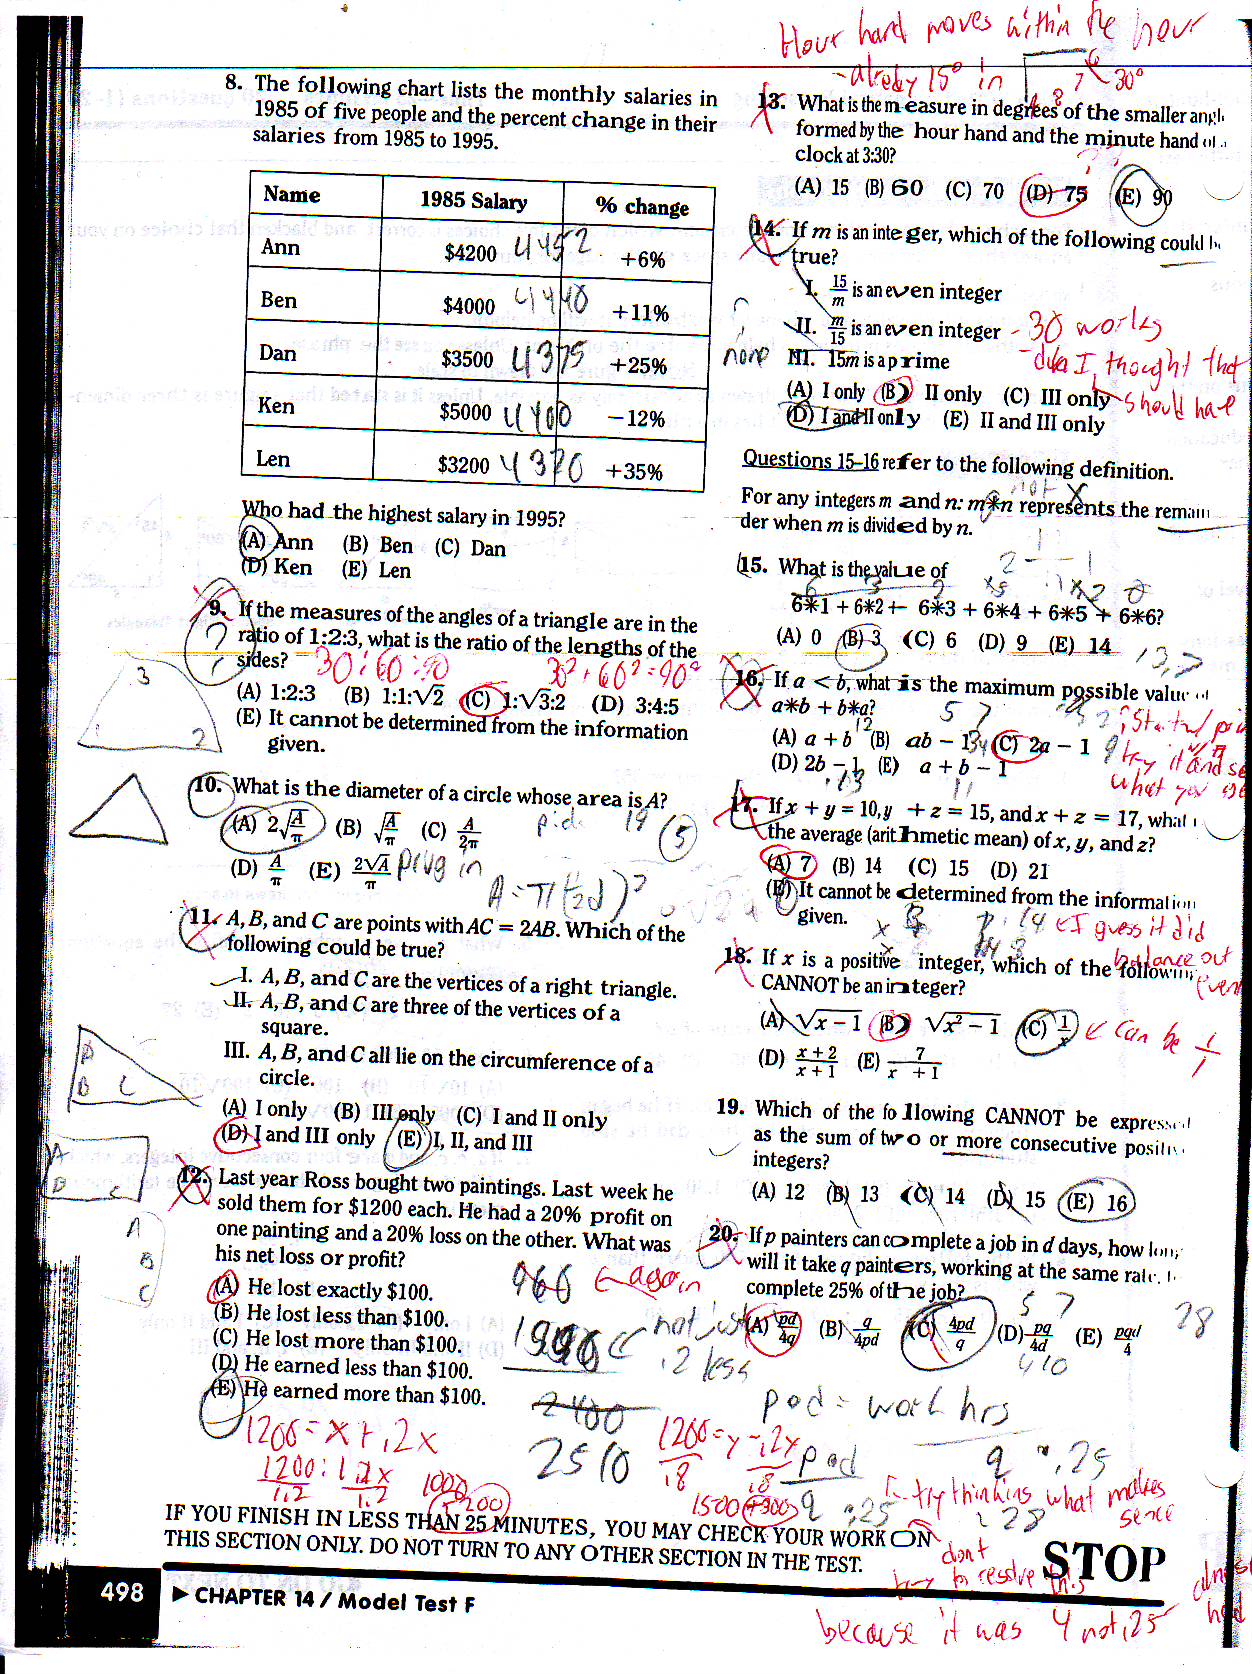 Hour hand moves within the hour
- already 15° in
30°
8. The following chart lists the monthly salaries in
1985 of five people and the percent change in their
salaries from 1985 to 1995.
Name 1985 Salary % change
Ann $4200 4452 +6%
Ben $4000 4440 +11%
Dan $3500 4375 +25%
Ken $5000 4400 −12%
Len $3200 4320 +35%
Who had the highest salary in 1995?
(A) Ann (B) Ben (C) Dan
(D) Ken (E) Len
9. If the measures of the angles of a triangle are in the
ratio of 1:2:3, what is the ratio of the lengths of the
sides? 30:60:90 30²+60²=90²
(A) 1:2:3 (B) 1:1:√2 (C) 1:√3:2 (D) 3:4:5
(E) It cannot be determined from the information
given.
3
2
10. What is the diameter of a circle whose area is A?
(A) 2√A/π (B) √A/π (C) A/2π
(D) A/π (E) 2√A/π
plug in
11. A, B, and C are points with AC = 2AB. Which of the
following could be true?
I. A, B, and C are the vertices of a right triangle.
II. A, B, and C are three of the vertices of a
square.
III. A, B, and C all lie on the circumference of a
circle.
(A) I only (B) III only (C) I and II only
(D) I and III only (E) I, II, and III
A
B C
A
B C
A
B
C
12. Last year Ross bought two paintings. Last week he
sold them for $1200 each. He had a 20% profit on
one painting and a 20% loss on the other. What was
his net loss or profit?
(A) He lost exactly $100.
(B) He lost less than $100.
(C) He lost more than $100.
(D) He earned less than $100.
(E) He earned more than $100.
960 ← again
not just
.2 less
2400
2510
1200=x+.2x
1200=1.2x
1.2 1.2
1000
+200
1200=y-.2y
.8 .8
1500 +300
13. What is the measure in degrees of the smaller angl
formed by the hour hand and the minute hand of
clock at 3:30?
(A) 15 (B) 60 (C) 70 (D) 75 (E) 90
14. If m is an integer, which of the following could b
true?
I. 15/m is an even integer
II. m/15 is an even integer - 30 works
III. 15m is a prime
none
- duh I thought that
should have
(A) I only (B) II only (C) III only
(D) I and II only (E) II and III only
Questions 15-16 refer to the following definition.
not
For any integers m and n: m*n represents the remain
der when m is divided by n.
15. What is the value of
6*1 + 6*2 + 6*3 + 6*4 + 6*5 + 6*6?
(A) 0 (B) 3 (C) 6 (D) 9 (E) 14
16. If a < b, what is the maximum possible value of
a*b + b*a? 5 7
(A) a + b (B) ab − 1 (C) 2a − 1
(D) 2b − 1 (E) a + b − 1
try it and see
what you get
17. If x + y = 10, y + z = 15, and x + z = 17, what i
the average (arithmetic mean) of x, y, and z?
(A) 7 (B) 14 (C) 15 (D) 21
(E) It cannot be determined from the information
given.
← I guess it did
balance out
18. If x is a positive integer, which of the following
CANNOT be an integer?
(A) √x − 1 (B) √x² − 1 (C) 1/x ← can be 1/1
(D) x + 2/x + 1 (E) 7/x + 1
19. Which of the following CANNOT be expressed
as the sum of two or more consecutive positive
integers?
(A) 12 (B) 13 (C) 14 (D) 15 (E) 16
20. If p painters can complete a job in d days, how long
will it take q painters, working at the same rate, t
complete 25% of the job?
5 7
28
(A) pd/4q (B) q/4pd (C) 4pd/q (D) pq/4d (E) pqd/4
4 10
p·d = work hrs
q .25
p·d
q ÷.25
← try thinking what makes
sense
28
don't
try to resolve this
because it was 4 not .25
IF YOU FINISH IN LESS THAN 25 MINUTES, YOU MAY CHECK YOUR WORK ON
THIS SECTION ONLY. DO NOT TURN TO ANY OTHER SECTION IN THE TEST.
STOP
498 ▶ CHAPTER 14 / Model Test F